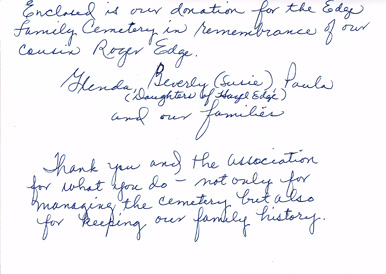 Enclosed is our donation for the Edge
Family Cemetery in remembrance of our
cousin Roger Edge.
Glenda, Beverly (Susie) Paula
(Daughters of Hazel Edge)
and our families
Thank you and the association
for what you do - not only for
managing the cemetery but also
for keeping our family history.